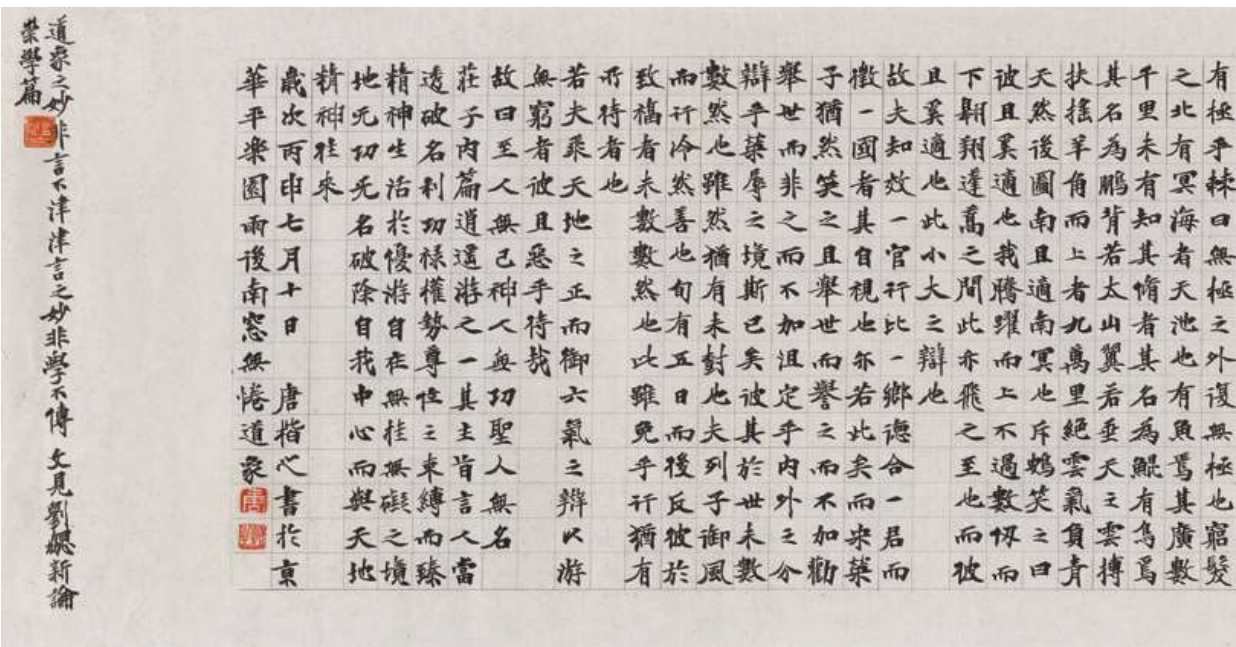 有極乎棘曰無極之外復無極也窮髮
之北有冥海者天池也有魚焉其廣數
千里未有知其脩者其名為鯤有鳥焉
其名為鵬背若太山翼若垂天之雲搏
扶搖羊角而上者九萬里絕雲氣負青
天然後圖南且適南冥也斥鴳笑之曰
彼且奚適也我騰躍而上不過數仞而
下翱翔蓬蒿之間此亦飛之至也而彼
且奚適也此小大之辯也
故夫知效一官行比一鄉德合一君而
徵一國者其自視也亦若此矣而宋榮
子猶然笑之且舉世而譽之而不加勸
舉世而非之而不加沮定乎內外之分
辯乎榮辱之境斯已矣彼其於世未數
數然也雖然猶有未樹也夫列子御風
而行泠然善也旬有五日而後反彼於
致福者未數數然也此雖免乎行猶有
所待者也
若夫乘天地之正而御六氣之辯以游
無窮者彼且惡乎待哉
故曰至人無己神人無功聖人無名
莊子內篇逍遙游之一其主旨言人當
透破名利功祿權勢尊位之束縛而臻
精神生活於優游自在無掛無礙之境
地无功无名破除自我中心而與天地
精神往來
歲次丙申七月十日 唐楷心書於京
華平樂園雨後南窗無惓道家
道家之妙非言不津津言之妙非學不傳 文見劉勰新論
崇學篇